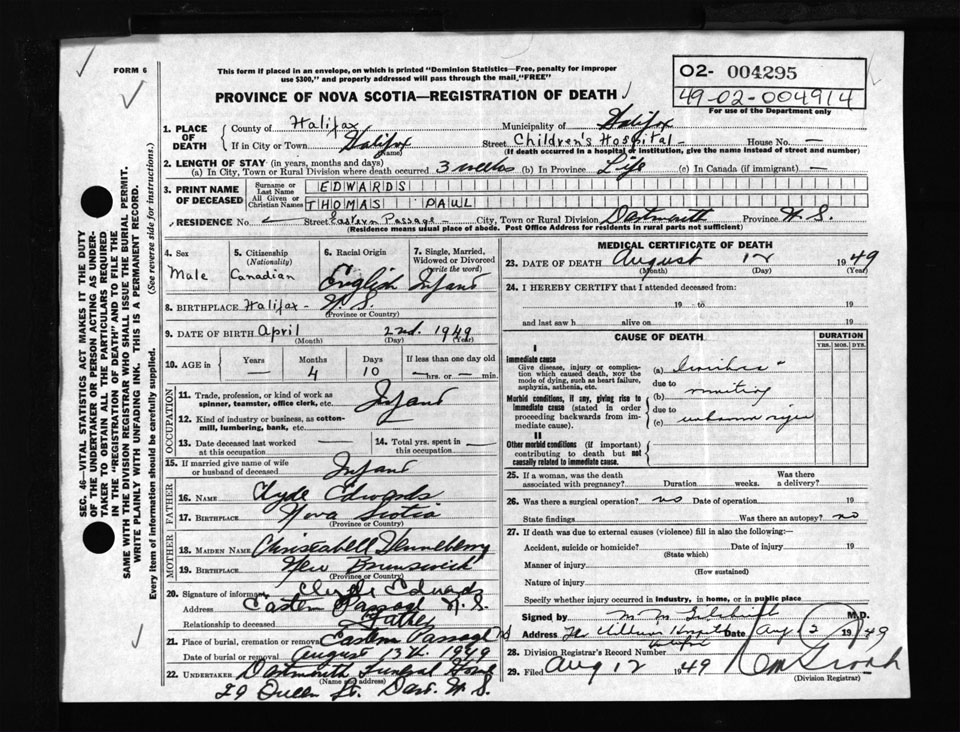 FORM 6
This form if placed in an envelope, on which is printed "Dominion Statistics—Free, penalty for improper
use $300," and properly addressed will pass through the mail, "FREE"
O2- 004295
49-02-004914
For use of the Department only
PROVINCE OF NOVA SCOTIA—REGISTRATION OF DEATH
1. PLACE OF DEATH
County of Halifax
Municipality of Halifax
If in City or Town Halifax
(Name)
Street Children's Hospital - House No. —
(If death occurred in a hospital or institution, give the name instead of street and number)
2. LENGTH OF STAY (in years, months and days)
(a) In City, Town or Rural Division where death occurred 3 weeks (b) In Province Life (c) In Canada (if immigrant) —
3. PRINT NAME OF DECEASED
Surname or Last Name EDWARDS
All Given or Christian Names THOMAS PAUL
RESIDENCE No. Street Eastern Passage - City, Town or Rural Division Dartmouth Province N.S.
(Residence means usual place of abode. Post Office Address for residents in rural parts not sufficient)
4. Sex
Male
5. Citizenship
(Nationality)
Canadian
6. Racial Origin
English
7. Single, Married,
Widowed or Divorced
(write the word)
Infant
8. BIRTHPLACE Halifax - N.S.
(Province or Country)
9. DATE OF BIRTH April 2nd. 1949
(Month) (Day) (Year)
10. AGE in
Years —
Months 4
Days 10
If less than one day old
—hrs. or —min.
OCCUPATION
11. Trade, profession, or kind of work as
spinner, teamster, office clerk, etc. Infant
12. Kind of industry or business, as cotton-
mill, lumbering, bank, etc. —
13. Date deceased last worked
at this occupation —
14. Total yrs. spent in
this occupation —
15. If married give name of wife
or husband of deceased Infant
FATHER
16. NAME Clyde Edwards
17. BIRTHPLACE Nova Scotia
(Province or Country)
MOTHER
18. MAIDEN NAME Christabell Henneberry
19. BIRTHPLACE New Brunswick
(Province or Country)
20. Signature of informant Clyde Edwards
Address Eastern Passage N.S.
Relationship to deceased Father
21. Place of burial, cremation or removal Eastern Passage NS
Date of burial or removal August 13th. 1949
22. UNDERTAKER Dartmouth Funeral Home
(Name and address)
29 Queen St. Dart. N.S.
MEDICAL CERTIFICATE OF DEATH
23. DATE OF DEATH August 12 1949
(Month) (Day) (Year)
24. I HEREBY CERTIFY that I attended deceased from:
19 to 19
and last saw h alive on 19
CAUSE OF DEATH
DURATION
YRS. MOS. DYS.
I
Immediate cause
Give disease, injury or complica-
tion which caused death, NOT the
mode of dying, such as heart failure,
asphyxia, asthenia, etc.
(a)
due to
Morbid conditions, if any, giving rise to
immediate cause (stated in order
proceeding backwards from im-
mediate cause).
(b)
due to
(c) unknown
II
Other morbid conditions (if important)
contributing to death but not
causally related to immediate cause.
25. If a woman, was the death
associated with pregnancy? Duration weeks. Was there
a delivery?
26. Was there a surgical operation? no Date of operation 19
State findings Was there an autopsy? no
27. If death was due to external causes (violence) fill in also the following:—
Accident, suicide or homicide? Date of injury 19
(State which)
Manner of injury
(How sustained)
Nature of injury
Specify whether injury occurred in industry, in home, or in public place
Signed by M.D.
Address Hospital Date Aug 1949
Halifax
28. Division Registrar's Record Number
29. Filed Aug 12 1949
(Division Registrar)
SEC. 46—VITAL STATISTICS ACT MAKES IT THE DUTY
OF THE UNDERTAKER OR PERSON ACTING AS UNDER-
TAKER TO OBTAIN ALL THE PARTICULARS REQUIRED
IN THE "REGISTRATION OF DEATH" AND TO FILE THE
SAME WITH THE DIVISION REGISTRAR WHO SHALL ISSUE THE BURIAL PERMIT.
WRITE PLAINLY WITH UNFADING INK. THIS IS A PERMANENT RECORD.
Every item of information should be carefully supplied. (See reverse side for instructions.)